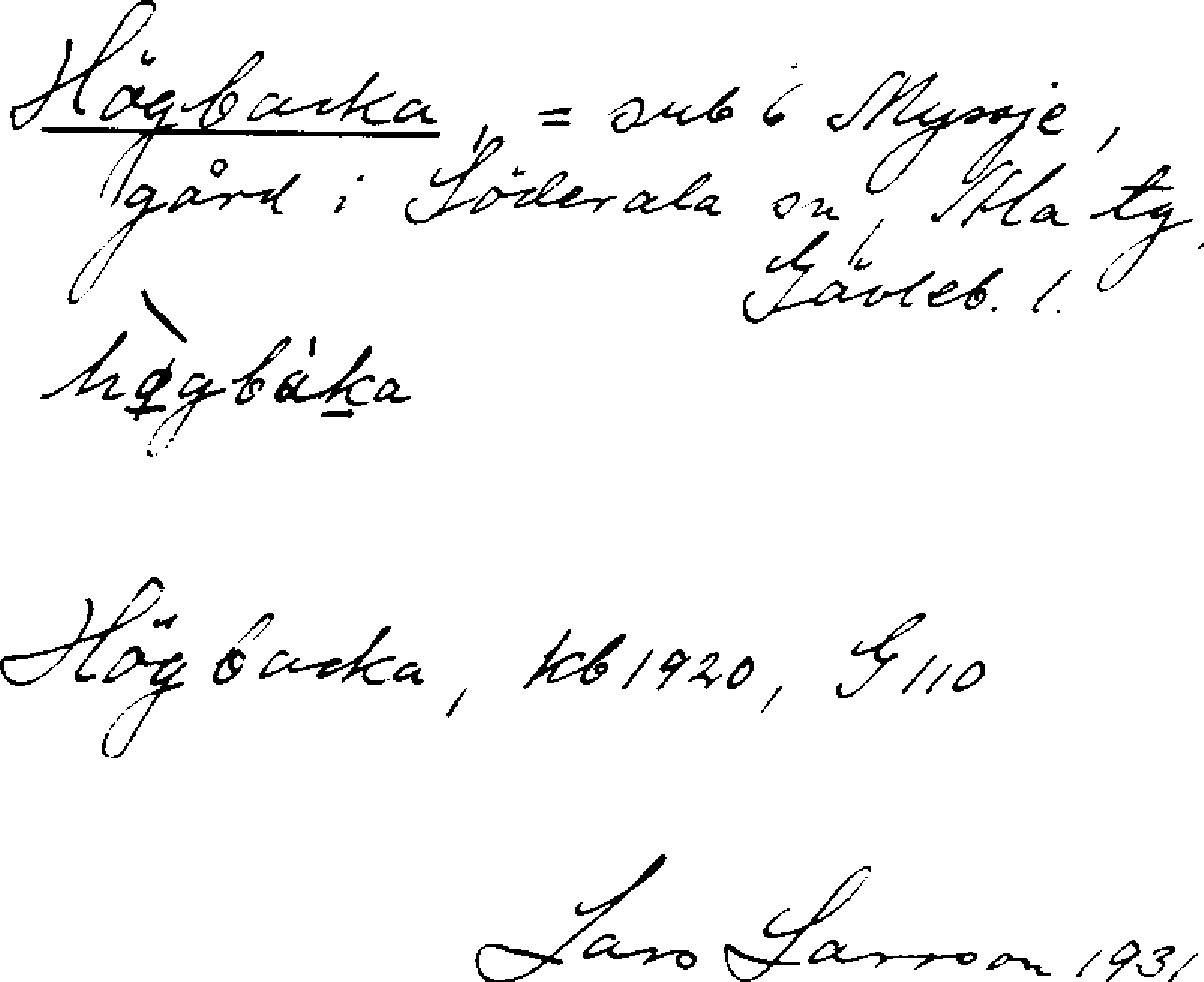 Högbacka, = sub 6 Myssje,
gård i Söderala sn, Ala tg,
Gävleb. l.
hògbáka
Högbacka, kb 1920, G 110
Lars Larsson 1931